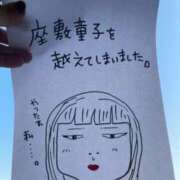 座敷童子を
越えてしまいました。
やったな
私‥‥。